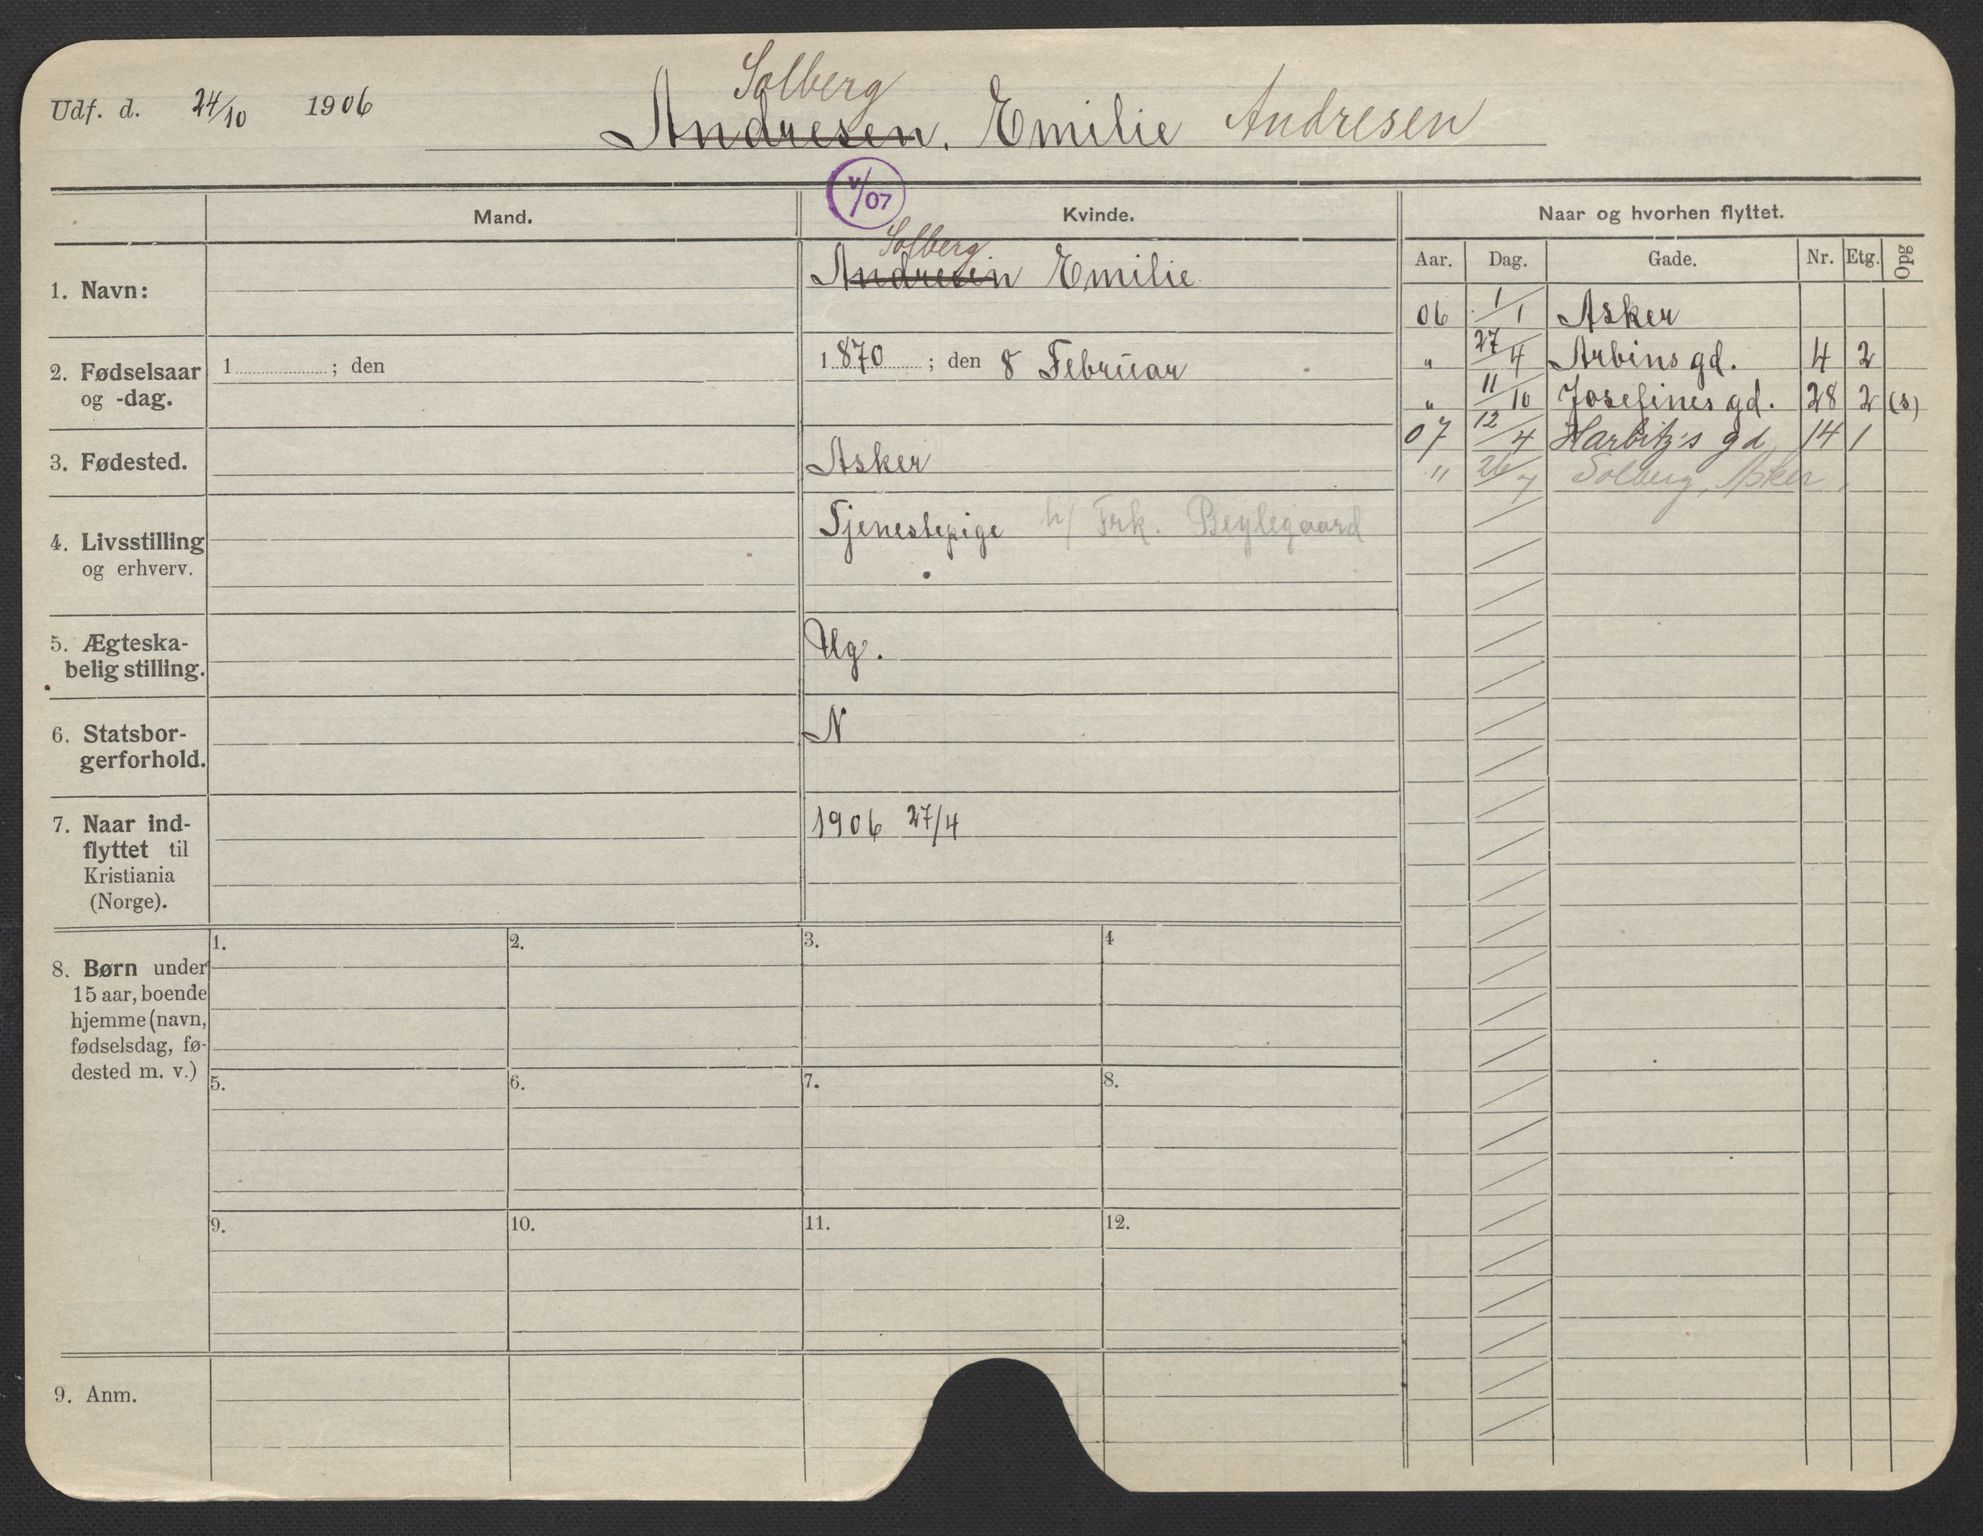 Udf. d. 24/10 1906
Solberg
Andresen. Emilie Andresen
v/07
Mand.
Kvinde.
Naar og hvorhen flyttet.
Aar. Dag. Gade. Nr. Etg. Opg
1. Navn:
Solberg
Andresen Emilie
06 1/1 Asker
2. Fødselsaar
og -dag.
1 ; den
1870 ; den 8 Februar
" 27/4 Arbins gd. 4 2
" 11/10 Josefines gd. 28 2 (s)
07 12/4 Harbitz's gd 14 1
" 26/7 Solberg, Asker.
3. Fødested.
Asker
4. Livsstilling
og erhverv.
Tjenestepige h/ Frk. Beylegaard
5. Ægteska-
belig stilling.
Ug.
6. Statsbor-
gerforhold.
N
7. Naar ind-
flyttet til
Kristiania
(Norge).
1906 27/4
8. Børn under
15 aar, boende
hjemme (navn,
fødselsdag, fø-
dested m. v.)
1. 2. 3. 4
5. 6. 7. 8.
9. 10. 11. 12.
9. Anm.